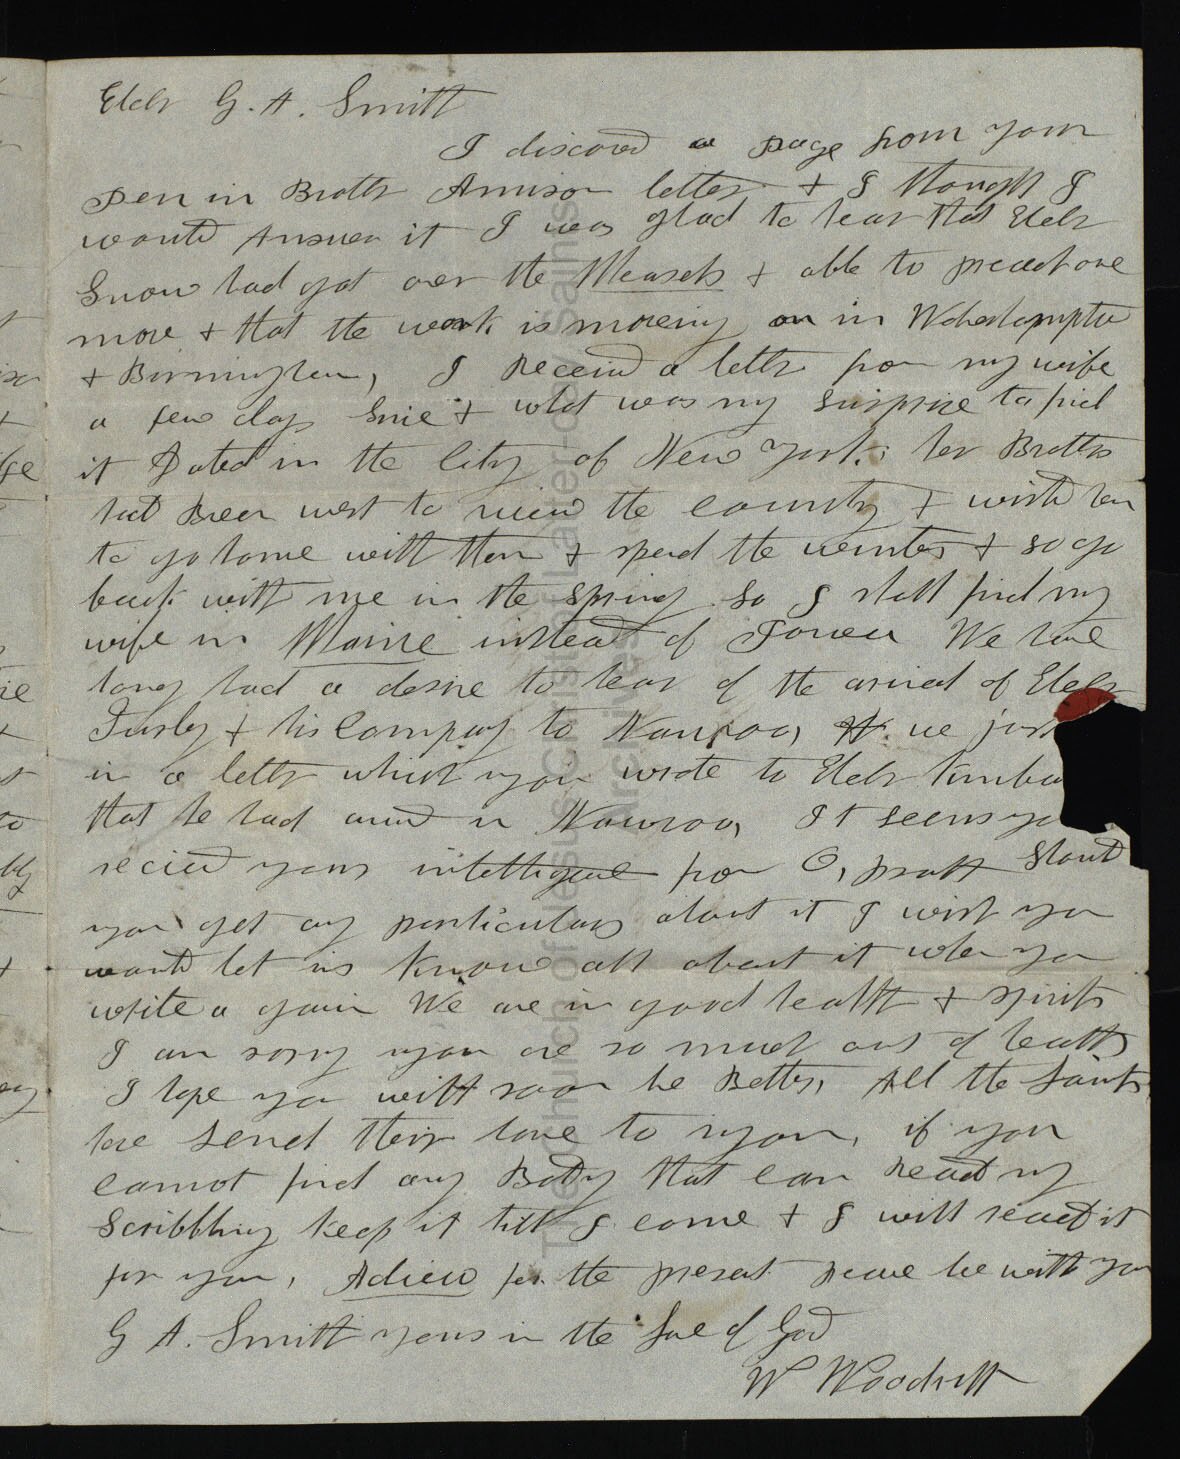 Elder G. A. Smith
I discoverd a page from your
pen in Brother letter & I thought I
would Answer it I was glad to hear that Elder
Snow had got over the Measels & able to preach one
more & that the work is moveing on in Wolverhampton
& Birmingham, I Received a letter from my wife
a few days since & what was my surprise to find
it Dated in the City of New York; her Brothers
had Been west to view the country & wished her
to go home with them & spend the winter & so go
back with me in the spring so I shall find my
wife in Maine instead of We have
long had a desire to hear of the arival of Elder
Turley & his Company to Nauvoo, we just
in a letter which you wrote to Elder Kimba
that he had arived in Nauvoo, It seems yo
recieved your intelligence from O, Pratt Should
you get any particulars about it I wish you
would let us Know all about it when you
write a gain We are in good health & spirits
I am sorry you are so much out of health
I hope you will soon be Better, All the Saints
here send their love to you, if you
cannot find any Body that can Read my
Scribbling keep it till I come & I will read it
for you, Adieu for the present peace be with you
G A. Smith yours in the love of God
W Woodruff
The Church of Jesus Christ of Latter-day Saints
Archives